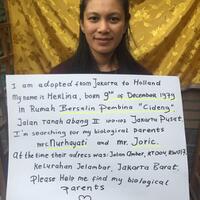 I am adopted from Jakarta to Holland
My name is Herlina, born 9th of December 1979
in Rumah Bersalin Pembina "Cideng"
Jalan Tanah Abang II Jakarta Pusat.
I'm searching for my biological parents
Mrs. Nurhayati and Mr. Joric.
At the time their adress was: Jalan Amber, RT004, RW017.
Kelurahan Jelambar, Jakarta Barat.
Please Help me find my biological
parents